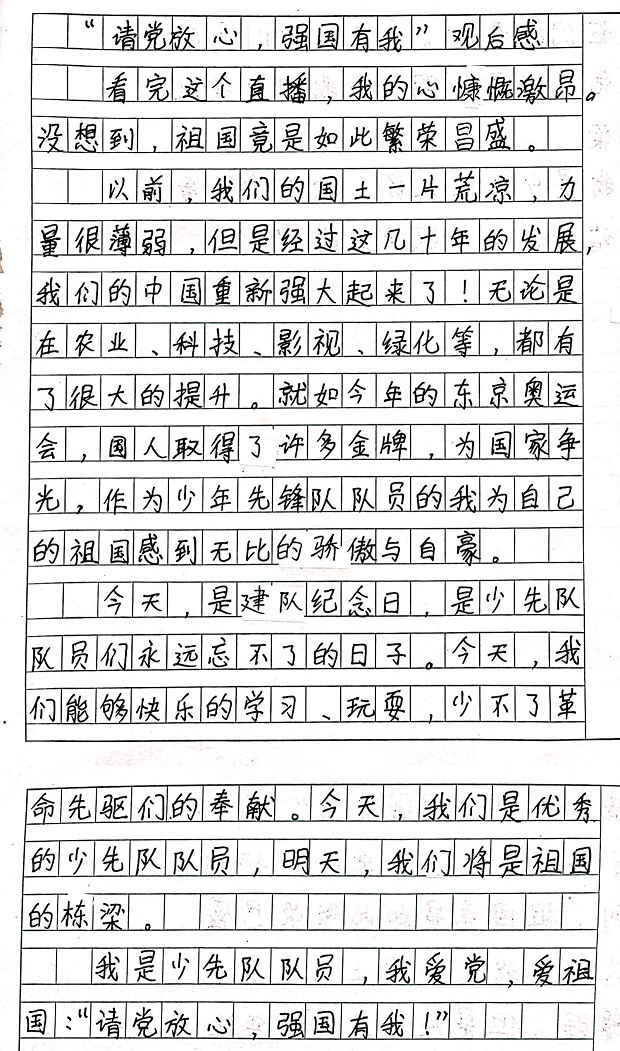 “请党放心，强国有我”观后感
看完这个直播，我的心慷慨激昂。
没想到，祖国竟是如此繁荣昌盛。
以前，我们的国土一片荒凉，力
量很薄弱，但是经过这几十年的发展，
我们的中国重新强大起来了！无论是
在农业、科技、影视、绿化等，都有
了很大的提升。就如今年的东京奥运
会，国人取得了许多金牌，为国家争
光，作为少年先锋队队员的我为自己
的祖国感到无比的骄傲与自豪。
今天，是建队纪念日，是少先队
队员们永远忘不了的日子。今天，我
们能够快乐的学习、玩耍，少不了革
命先驱们的奉献。今天，我们是优秀
的少先队队员，明天，我们将是祖国
的栋梁。
我是少先队队员，我爱党，爱祖
国：“请党放心，强国有我！”